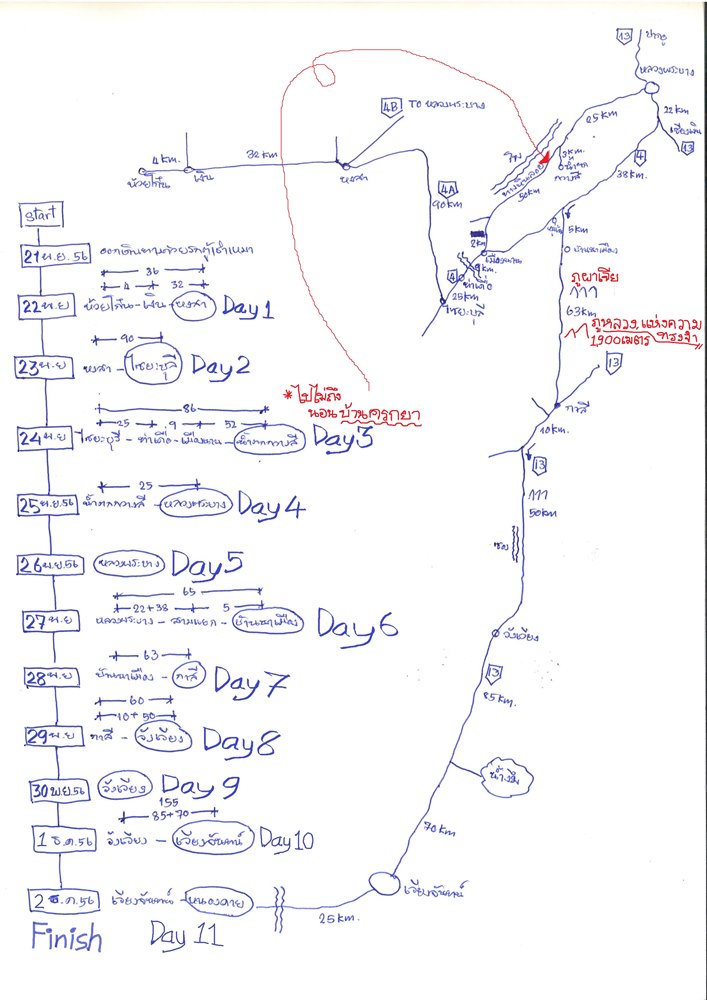 start
21 พ.ย. 56 ออกเดินทางด้วยรถตู้เช่าเหมา
36
4 32
22 พ.ย ห้วยโก๋น - เงิน - หงสา Day1
90
23 พ.ย หงสา - ไชยะบุลี Day2
86
25 9 52
24 พ.ย ไชยะบุรี - ท่าเดื่อ - เมืองนาน - น้ำตกกวางสี Day3
25
25 พ.ย. 56 น้ำตกกวางสี - หลวงพระบาง Day4
26 พ.ย. 56 หลวงพระบาง Day5
65
22+38 5
27 พ.ย หลวงพระบาง - สามแยก - บ้านนาเมือง Day6
63
28 พ.ย บ้านนาเมือง - กาสี Day7
60
10+50
29 พ.ย กาสี - วังเวียง Day8
30 พ.ย 56 วังเวียง Day9
155
85+70
1 ธ.ค. 56 วังเวียง - เวียงจันทน์ Day10
2 ธ.ค. 56 เวียงจันทน์ - หนองคาย
Finish Day 11
13
หลวงพระบาง
22 km
เชียงเงิน
13
4
38km
25 km
4B TO หลวงพระบาง
4 km.
32 km
ห้วยโก๋น
เงิน
หงสา
4A
90km
โขง
ทางดินลอย
50km
3km.
น้ำตก
กวางสี
2km
เมืองนาน
9km.
ท่าเดื่อ
4
25km
ไชยะบุลี
5km
บ้านนาเมือง
ภูผาเวีย
63km
ภูหลวงแห่งความ
1,900เมตร ทรงจำ
13
*ไปไม่ถึง
นอนบ้านครูกยา
กาสี
10km.
13
50km
ซอง
วังเวียง
13
85km.
น้ำงึม
70km
เวียงจันทน์
25km.